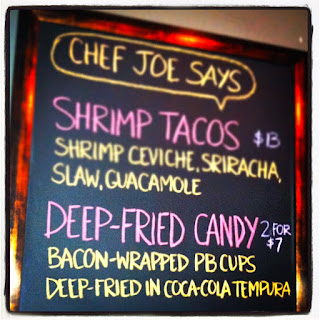 CHEF JOE SAYS
SHRIMP TACOS $13
SHRIMP CEVICHE, SRIRACHA,
SLAW, GUACAMOLE
DEEP-FRIED CANDY 2 FOR $7
BACON-WRAPPED PB CUPS
DEEP-FRIED IN COCA-COLA TEMPURA